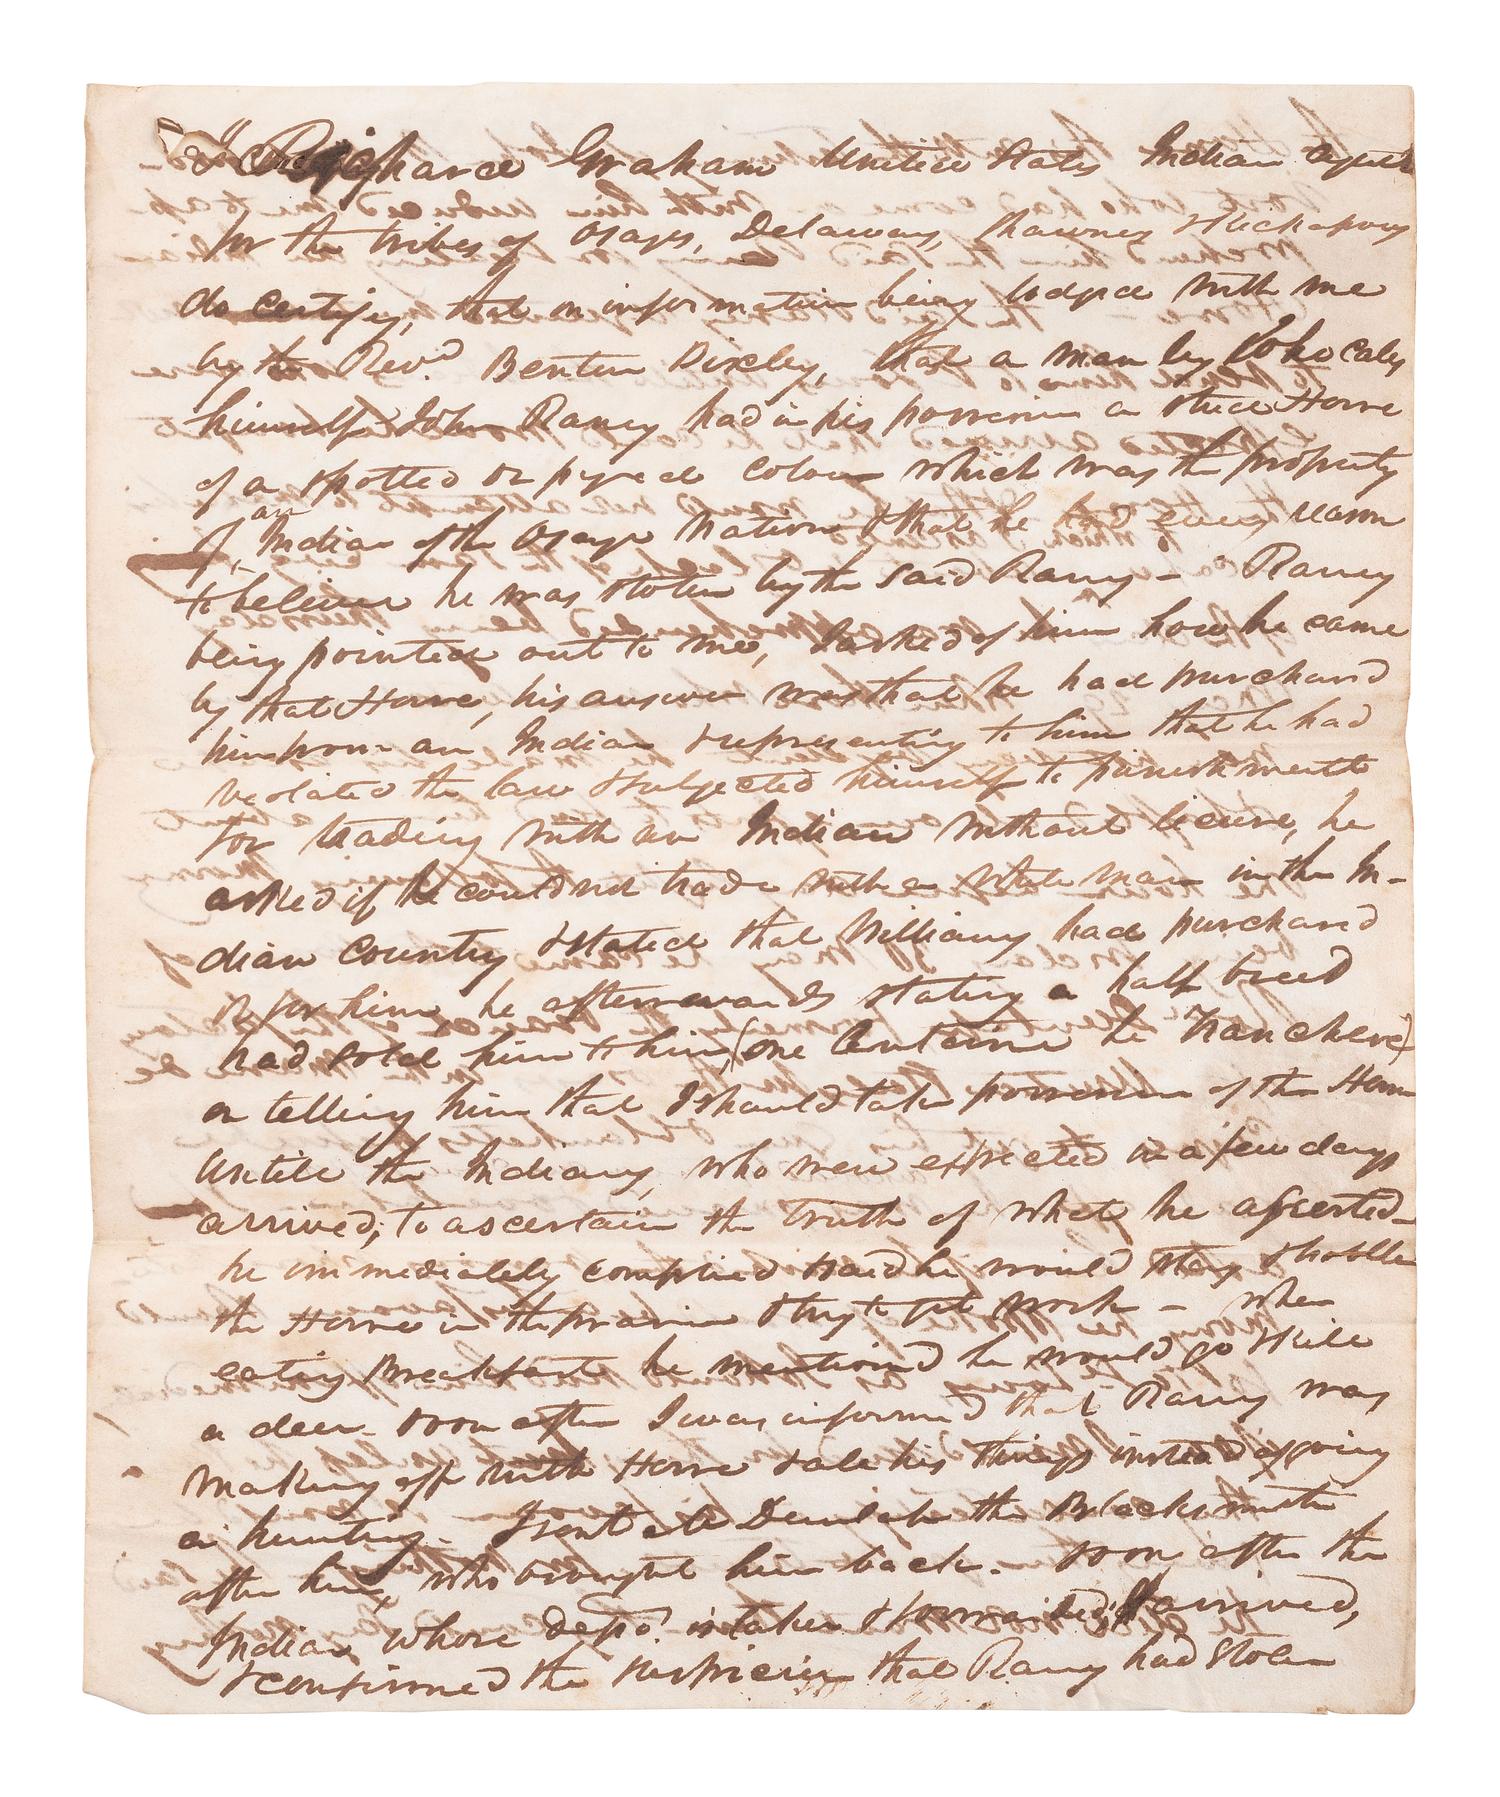 I Richard Graham United States Indian Agent
for the tribes of Osages, Delaways, Shawneys & Kickapoos
do certify, that on information being lodged with me
by the Revd. Benton Pixley, that a man by who calls
himself John Raney had in his possession a stud Horse
of a spotted or pyed colour which was the property
of an Indian of the Osage Nation & that he had every reason
to believe he was stolen by the said Raney - Raney
being pointed out to me, I asked of him how he came
by that Horse, his answer was that he had purchased
him from an Indian & representing to him that he had
violated the law & subjected himself to punishment
for trading with an Indian without licence, he
asked if he could not trade with a white man in the In-
dian country & stated that Williams had purchased
it for him, he afterwards stating a half breed
had sold him to him, (one Antoine le Tranchere)
on telling him that I should take possession of the Horse
until the Indians, who were expected in a few days
arrived, to ascertain the truth of what he asserted -
he immediately complied & said he would stay & hobble
the Horse in the prairie & try to get work - when
eating Breakfast he mentioned he would go & kill
a deer. soon after I was informed that Raney was
making off with Horse & all his things instead of going
a hunting. I sent the Blacksmith
after him, who brought him back. soon after the
Indian whose depo. is taken & forwarded, arrived,
& confirmed the suspicion that Raney had stolen